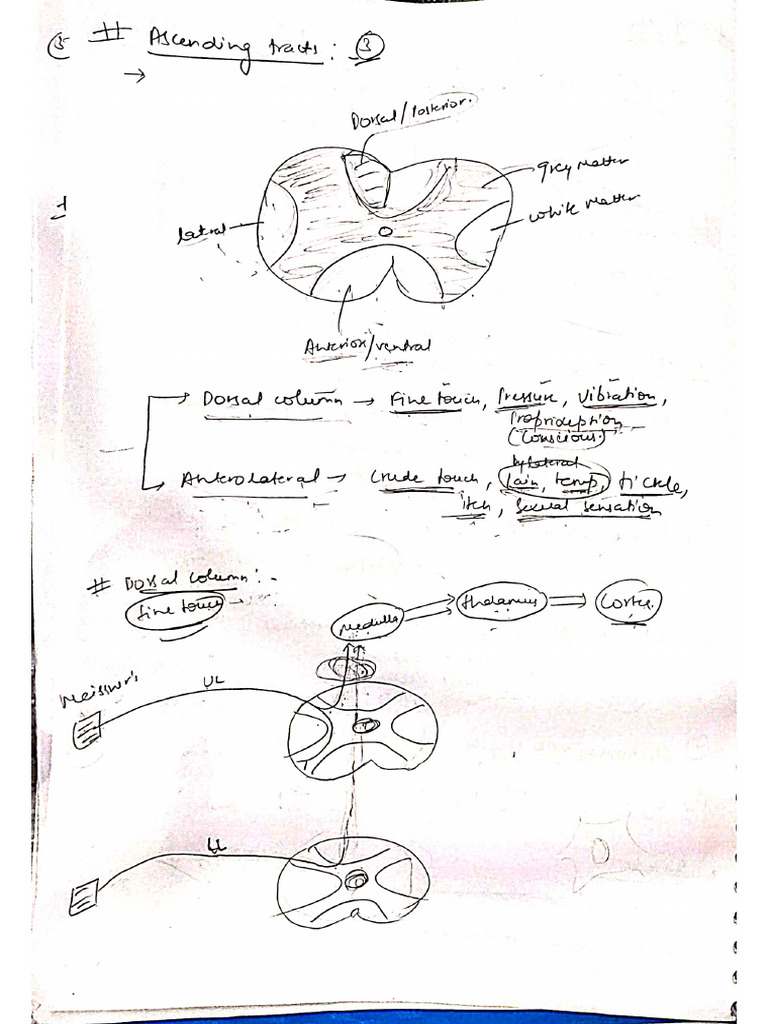 5 # Ascending tracts: 3
→
Dorsal/Posterior.
grey matter
white matter
lateral
Anterior/ventral
→ Dorsal column → Fine touch, Pressure, Vibration,
Proprioception
(Conscious)
→ Anterolateral → Crude touch, Pain, temp, tickle,
itch, Sexual sensation
# Dorsal column:-
fine touch
medulla
thalamus
Cortex
Meissner's
UL
LL